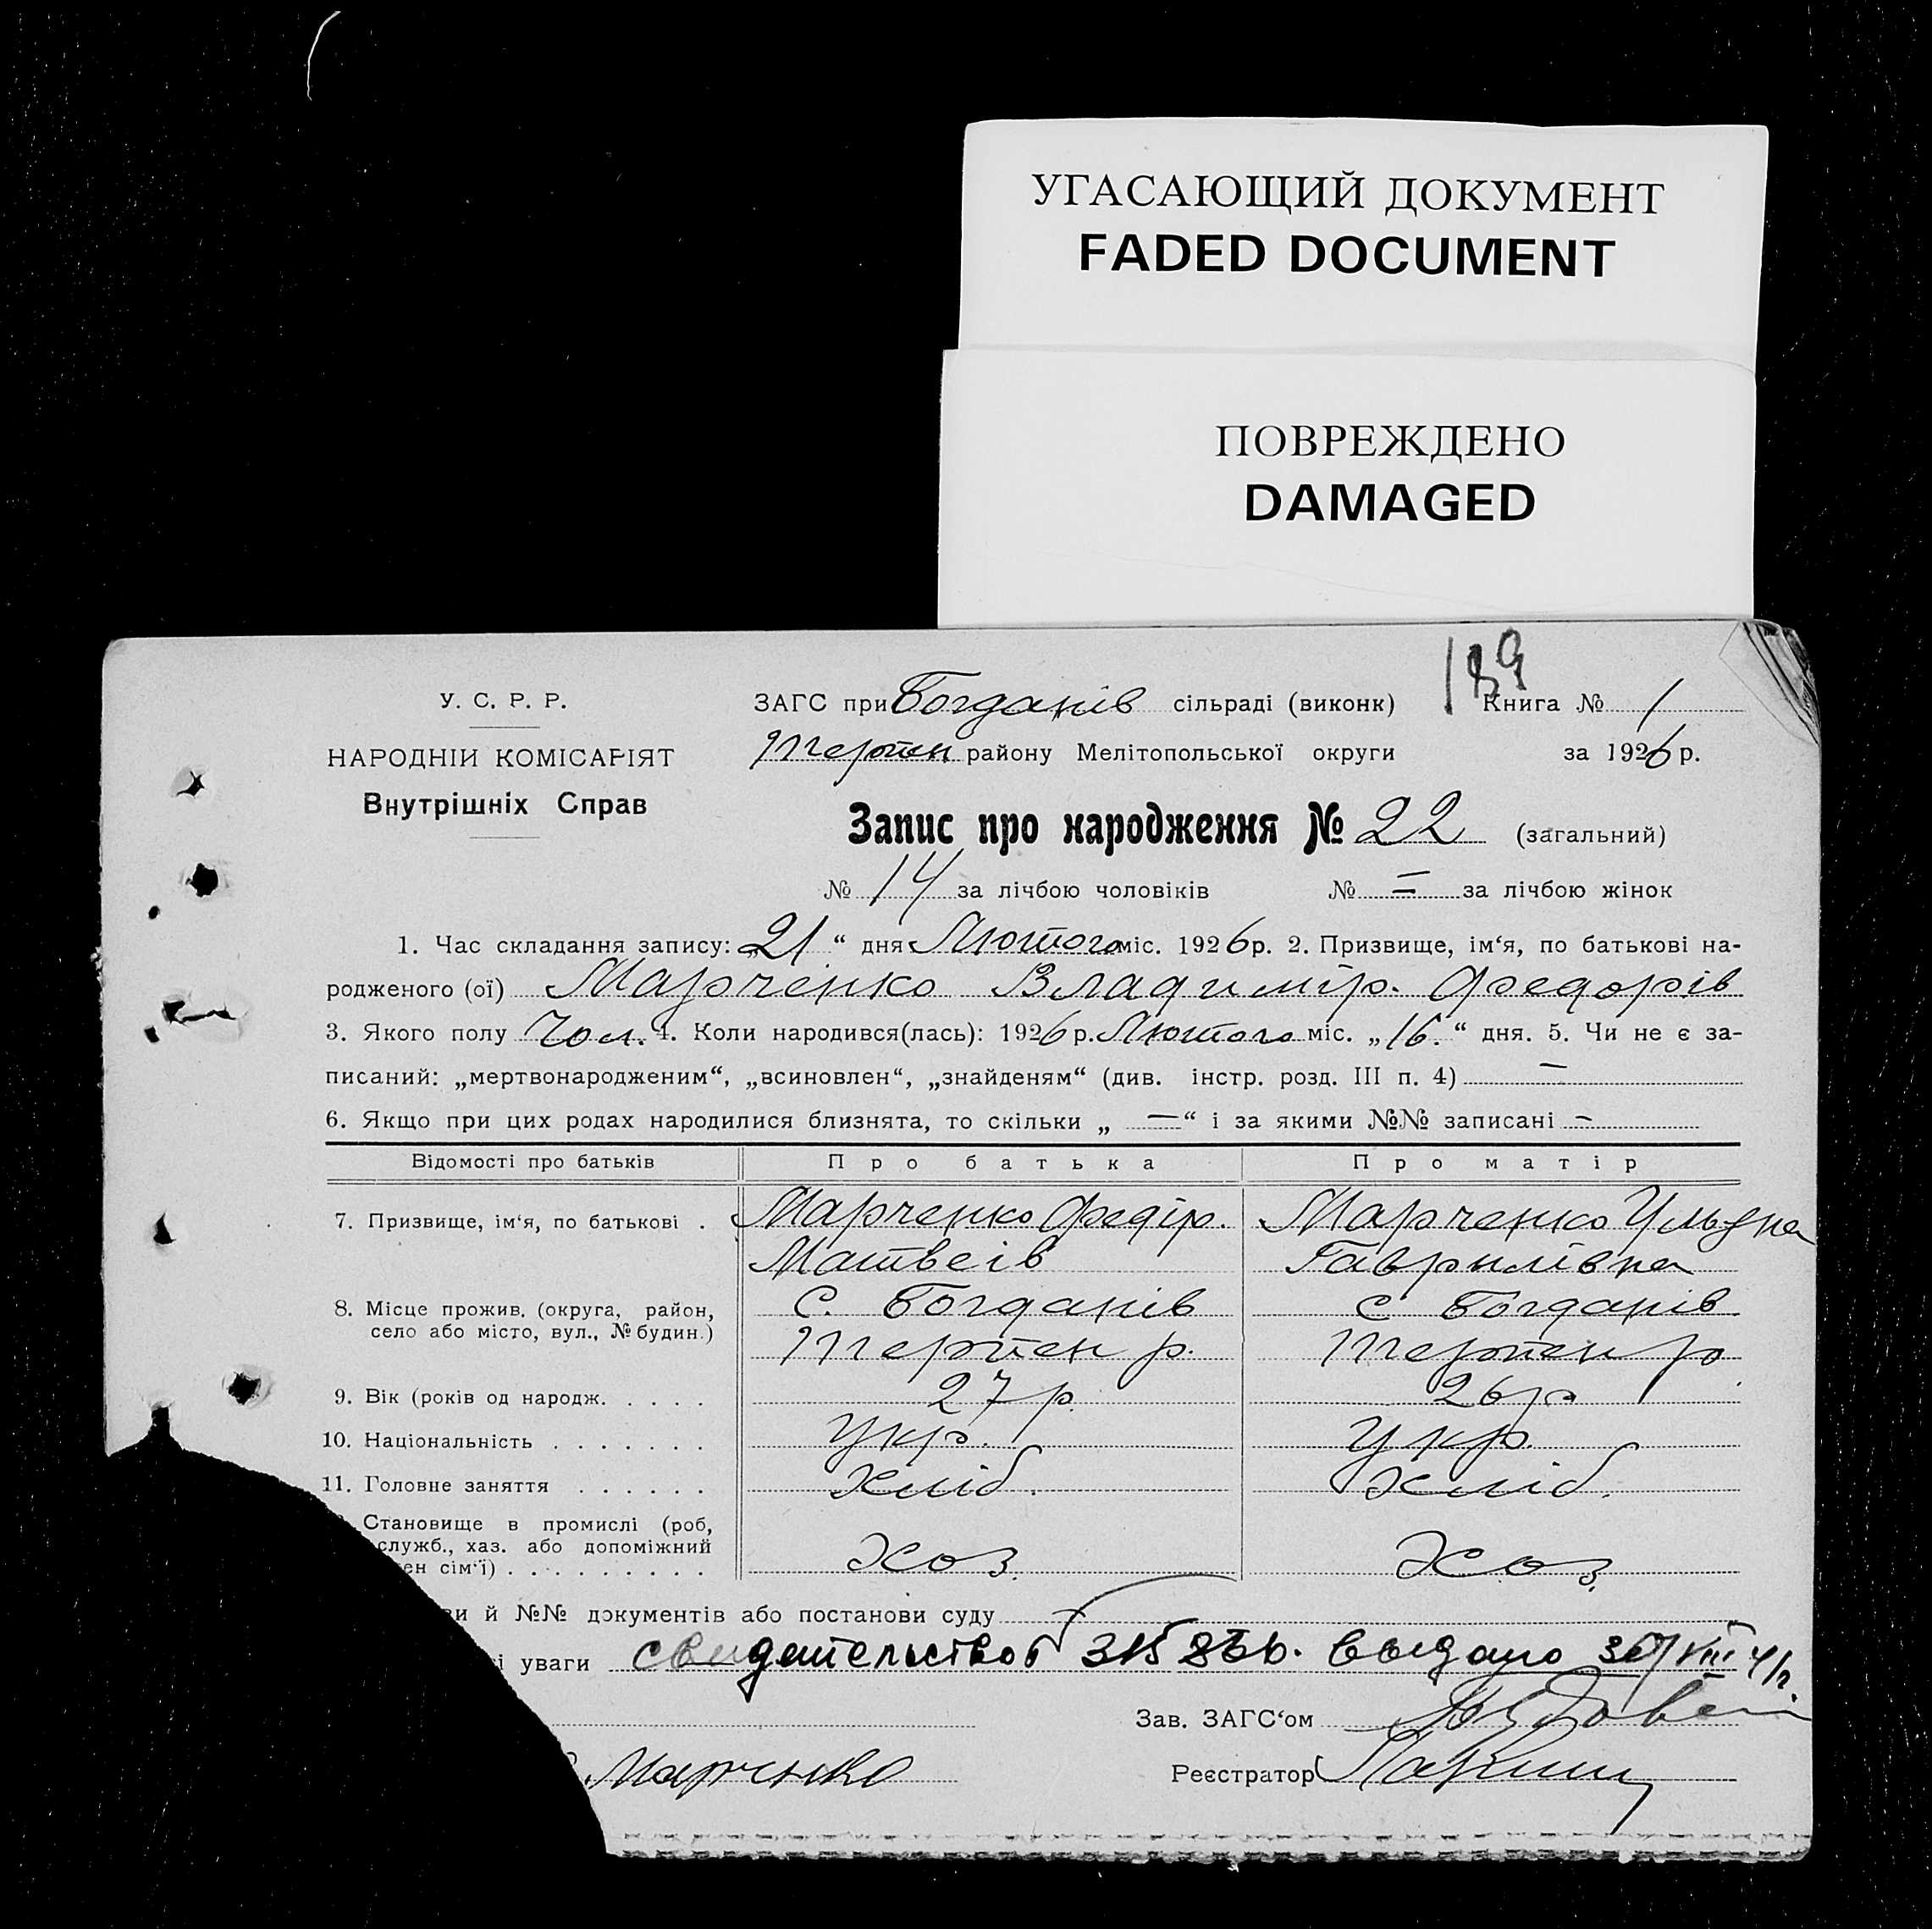 УГАСАЮЩИЙ ДОКУМЕНТ
FADED DOCUMENT
ПОВРЕЖДЕНО
DAMAGED
189
У. С. Р. Р.
ЗАГС при Богданів сільраді (виконк) Книга № 1
НАРОДНІЙ КОМІСАРІЯТ
Терпен району Мелітопольської округи за 1926 р.
Внутрішніх Справ
Запис про народження № 22 (загальний)
№ 14 за лічбою чоловіків № = за лічбою жінок
1. Час складання запису: „21“ дня Лютого міс. 1926 р. 2. Призвище, ім‘я, по батькові на-
родженого (ої) Марченко Владимір. Федорів
3. Якого полу Чол. 4. Коли народився(лась): 1926 р. Лютого міс. „16.“ дня. 5. Чи не є за-
писаний: „мертвонародженим“, „всиновлен“, „знайденям“ (див. інстр. розд. III п. 4) —
6. Якщо при цих родах народилися близнята, то скільки „ — “ і за якими №№ записані —
Відомості про батьків Про батька Про матір
7. Призвище, ім‘я, по батькові . Марченко Федір. Марченко Ульяна
Матвеів Гаврилівна
8. Місце прожив. (округа, район, С. Богданів с Богданів
село або місто, вул., № будин.) Терпен р. Терпен р
9. Вік (років од народж. . . . . 27 р. 26 р
10. Національність . . . . . . . Укр. Укр.
11. Головне заняття . . . . . . Хліб. Хліб.
Становище в промислі (роб,
служб., хаз. або допоміжний
ен сім‘ї) . . . . . . . . . Хоз. Хоз.
ви й №№ документів або постанови суду
і уваги свидетельство выдано
Зав. ЗАГС‘ом
Марченко Реєстратор